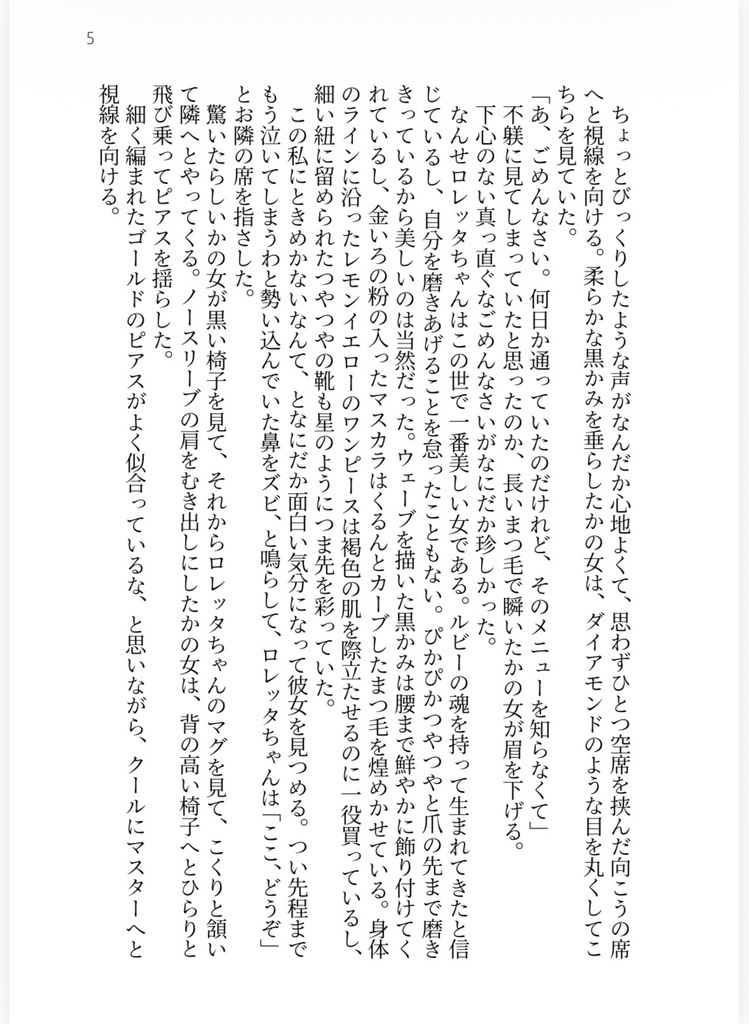 5
　ちょっとびっくりしたような声がなんだか心地よくて、思わずひとつ空席を挟んだ向こうの席
へと視線を向ける。柔らかな黒かみを垂らしたかの女は、ダイアモンドのような目を丸くしてこ
ちらを見ていた。
「あ、ごめんなさい。何日か通っていたのだけれど、そのメニューを知らなくて」
　不躾に見てしまっていたと思ったのか、長いまつ毛で瞬いたかの女が眉を下げる。
　下心のない真っ直ぐなごめんなさいがなにだか珍しかった。
　なんせロレッタちゃんはこの世で一番美しい女である。ルビーの魂を持って生まれてきたと信
じているし、自分を磨きあげることを怠ったこともない。ぴかぴかつやつやと爪の先まで磨き
きっているから美しいのは当然だった。ウェーブを描いた黒かみは腰まで鮮やかに飾り付けてく
れているし、金いろの粉の入ったマスカラはくるんとカーブしたまつ毛を煌めかせている。身体
のラインに沿ったレモンイエローのワンピースは褐色の肌を際立たせるのに一役買っているし、
細い紐に留められたつやつやの靴も星のようにつま先を彩っていた。
　この私にときめかないなんて、となにだか面白い気分になって彼女を見つめる。つい先程まで
もう泣いてしまうわと勢い込んでいた鼻をズビ、と鳴らして、ロレッタちゃんは「ここ、どうぞ」
とお隣の席を指さした。
　驚いたらしいかの女が黒い椅子を見て、それからロレッタちゃんのマグを見て、こくりと頷い
て隣へとやってくる。ノースリーブの肩をむき出しにしたかの女は、背の高い椅子へとひらりと
飛び乗ってピアスを揺らした。
　細く編まれたゴールドのピアスがよく似合っているな、と思いながら、クールにマスターへと
視線を向ける。